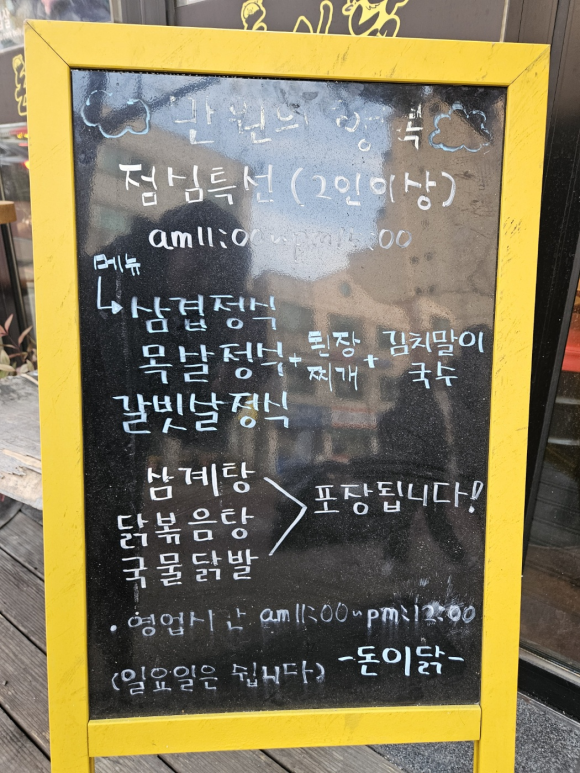 만원의 행복
점심특선(2인이상)
am11:00~pm:2:00
메뉴
삼겹정식
목살정식+된장찌개+김치말이국수
갈빗살정식
삼계탕
닭볶음탕
국물닭발
포장됩니다!
·영업시간 am11:00~pm:12:00
(일요일은 쉽니다)
-돈이닭-